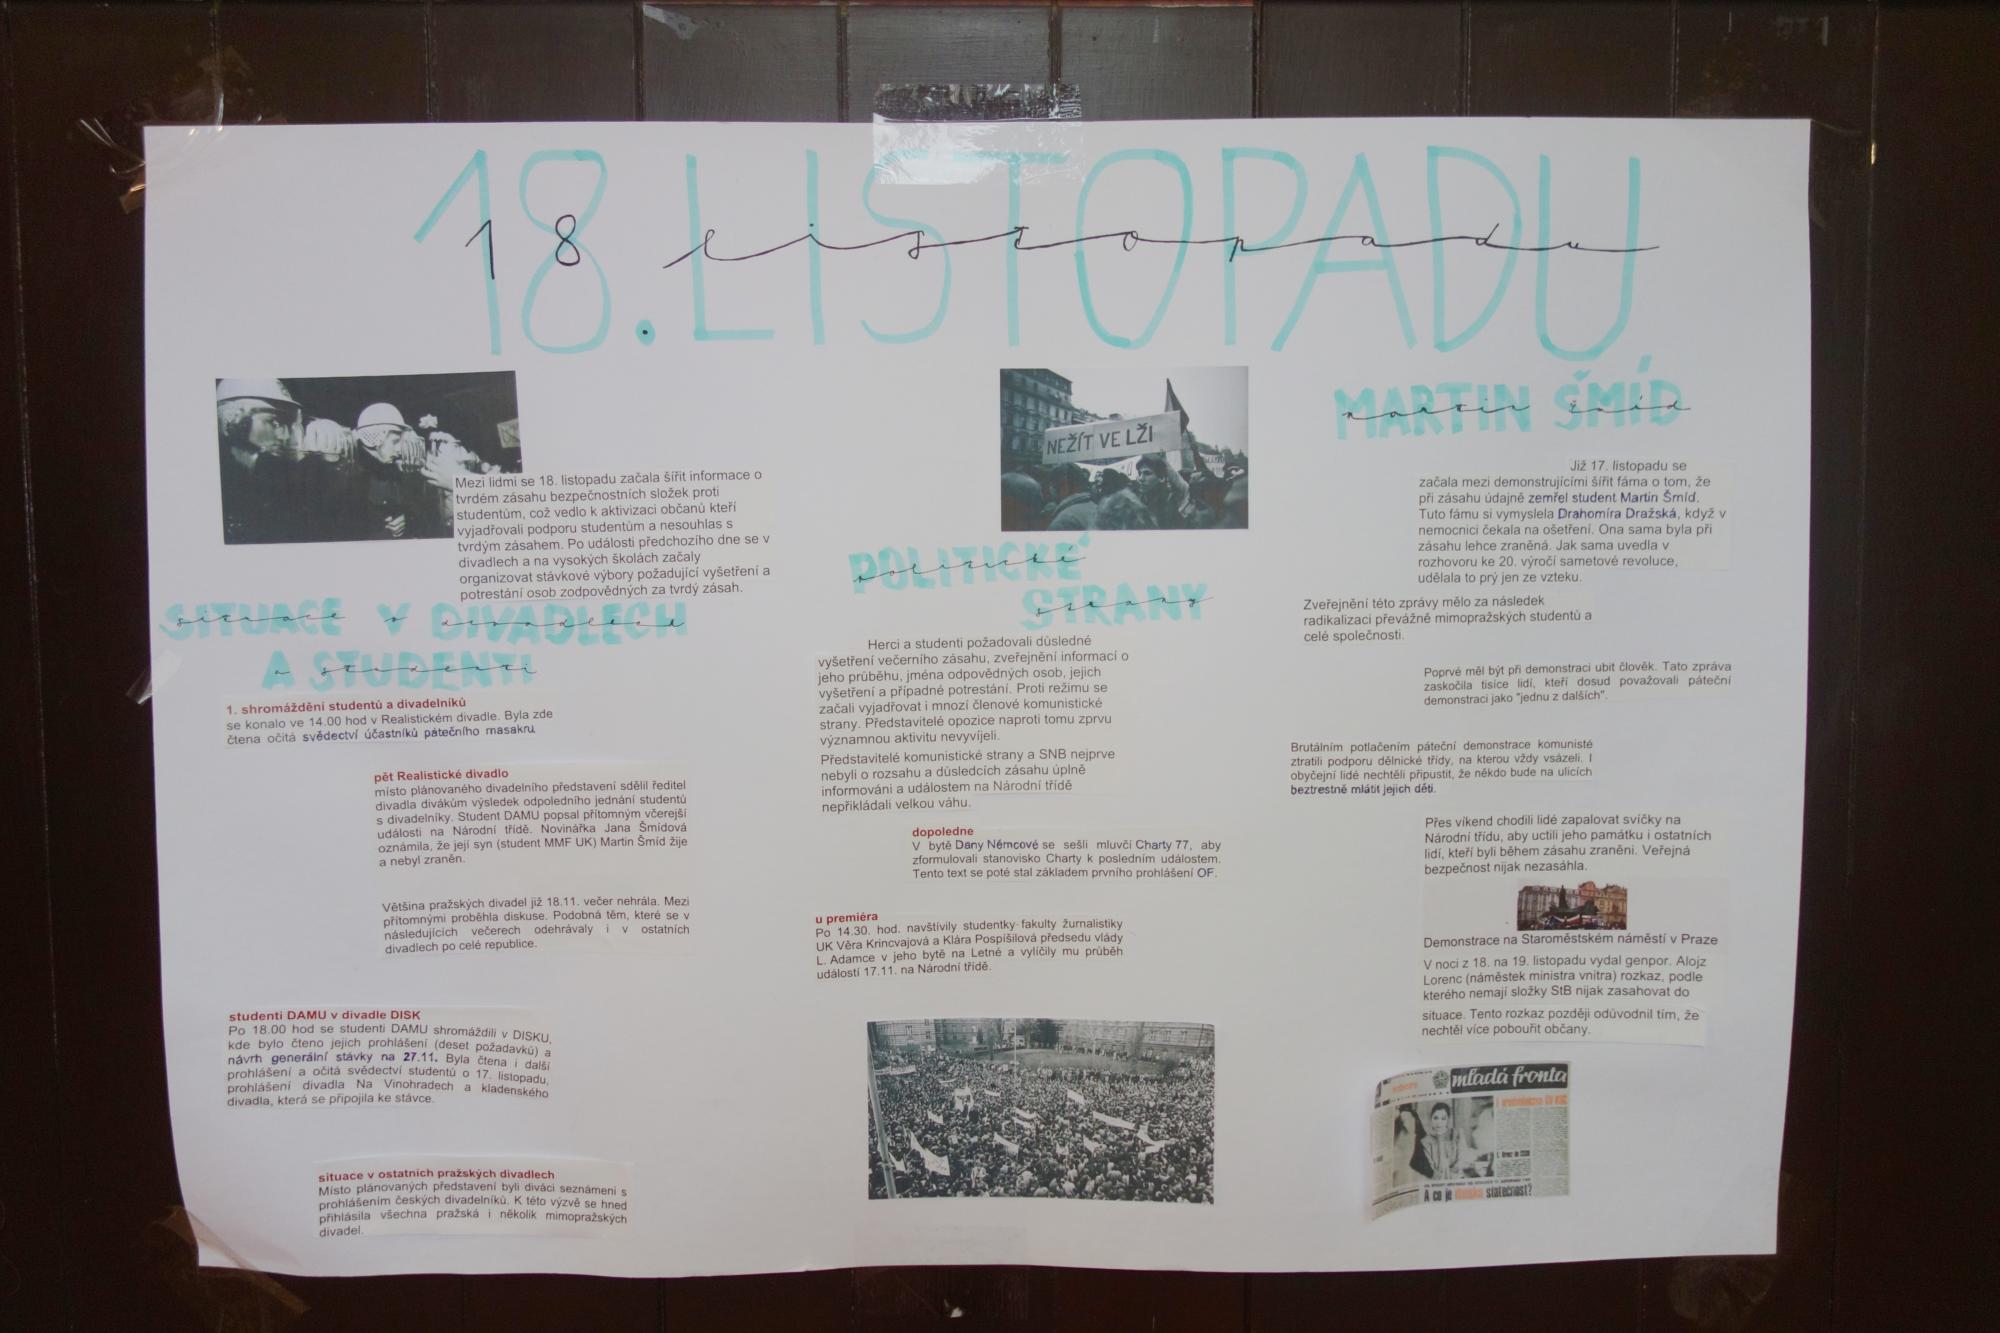 18. LISTOPADU
18 listopadu
NEŽÍT VE LŽI
Mezi lidmi se 18. listopadu začala šířit informace o
tvrdém zásahu bezpečnostních složek proti
studentům, což vedlo k aktivizaci občanů kteří
vyjadřovali podporu studentům a nesouhlas s
tvrdým zásahem. Po události předchozího dne se v
divadlech a na vysokých školách začaly
organizovat stávkové výbory požadující vyšetření a
potrestání osob zodpovědných za tvrdý zásah.
SITUACE V DIVADLECH
situace v divadlech
A STUDENTI
a studenti
1. shromáždění studentů a divadelníků
se konalo ve 14.00 hod v Realistickém divadle. Byla zde
čtena očitá svědectví účastníků pátečního masakru
pět Realistické divadlo
místo plánovaného divadelního představení sdělil ředitel
divadla divákům výsledek odpoledního jednání studentů
s divadelníky. Student DAMU popsal přítomným včerejší
události na Národní třídě. Novinářka Jana Šmídová
oznámila, že její syn (student MMF UK) Martin Šmíd žije
a nebyl zraněn.
Většina pražských divadel již 18.11. večer nehrála. Mezi
přítomnými proběhla diskuse. Podobná těm, které se v
následujících večerech odehrávaly i v ostatních
divadlech po celé republice.
studenti DAMU v divadle DISK
Po 18.00 hod se studenti DAMU shromáždili v DISKU,
kde bylo čteno jejich prohlášení (deset požadavků) a
návrh generální stávky na 27.11. Byla čtena i další
prohlášení a očitá svědectví studentů o 17. listopadu,
prohlášení divadla Na Vinohradech a kladenského
divadla, která se připojila ke stávce.
situace v ostatních pražských divadlech
Místo plánovaných představení byli diváci seznámeni s
prohlášením českých divadelníků. K této výzvě se hned
přihlásila všechna pražská i několik mimopražských
divadel.
POLITICKÉ
politické
STRANY
strany
Herci a studenti požadovali důsledné
vyšetření večerního zásahu, zveřejnění informací o
jeho průběhu, jména odpovědných osob, jejich
vyšetření a případné potrestání. Proti režimu se
začali vyjadřovat i mnozí členové komunistické
strany. Představitelé opozice naproti tomu zprvu
významnou aktivitu nevyvíjeli.
Představitelé komunistické strany a SNB nejprve
nebyli o rozsahu a důsledcích zásahu úplně
informováni a událostem na Národní třídě
nepřikládali velkou váhu.
dopoledne
V bytě Dany Němcové se sešli mluvčí Charty 77, aby
zformulovali stanovisko Charty k posledním událostem.
Tento text se poté stal základem prvního prohlášení OF.
u premiéra
Po 14.30. hod. navštívily studentky fakulty žurnalistiky
UK Věra Krincvajová a Klára Pospíšilová předsedu vlády
L. Adamce v jeho bytě na Letné a vylíčily mu průběh
událostí 17.11. na Národní třídě.
MARTIN ŠMÍD
martin šmíd
Již 17. listopadu se
začala mezi demonstrujícími šířit fáma o tom, že
při zásahu údajně zemřel student Martin Šmíd.
Tuto fámu si vymyslela Drahomíra Dražská, když v
nemocnici čekala na ošetření. Ona sama byla při
zásahu lehce zraněná. Jak sama uvedla v
rozhovoru ke 20. výročí sametové revoluce,
udělala to prý jen ze vzteku.
Zveřejnění této zprávy mělo za následek
radikalizaci převážně mimopražských studentů a
celé společnosti.
Poprvé měl být při demonstraci ubit člověk. Tato zpráva
zaskočila tisíce lidí, kteří dosud považovali páteční
demonstraci jako "jednu z dalších".
Brutálním potlačením páteční demonstrace komunisté
ztratili podporu dělnické třídy, na kterou vždy vsázeli. I
obyčejní lidé nechtěli připustit, že někdo bude na ulicích
beztrestně mlátit jejich děti.
Přes víkend chodili lidé zapalovat svíčky na
Národní třídu, aby uctili jeho památku i ostatních
lidí, kteří byli během zásahu zraněni. Veřejná
bezpečnost nijak nezasáhla.
Demonstrace na Staroměstském náměstí v Praze
V noci z 18. na 19. listopadu vydal genpor. Alojz
Lorenc (náměstek ministra vnitra) rozkaz, podle
kterého nemají složky StB nijak zasahovat do
situace. Tento rozkaz později odůvodnil tím, že
nechtěl více pobouřit občany.
mladá fronta
A co je statečnost?